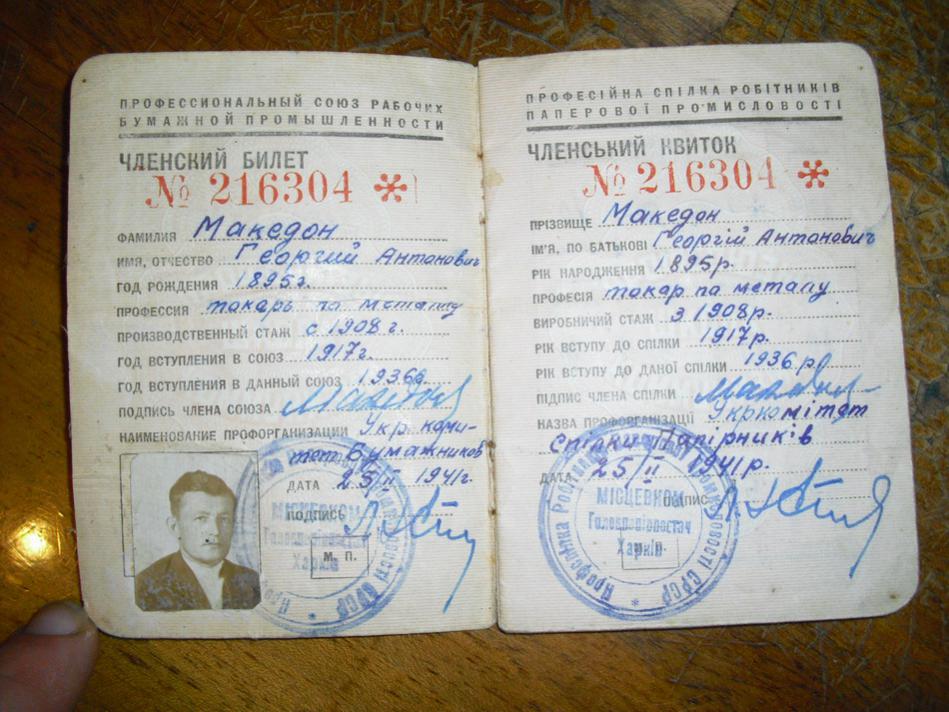 ПРОФЕССИОНАЛЬНЫЙ СОЮЗ РАБОЧИХ
БУМАЖНОЙ ПРОМЫШЛЕННОСТИ
ЧЛЕНСКИЙ БИЛЕТ
№ 216304 *
ФАМИЛИЯ Македон
ИМЯ, ОТЧЕСТВО Георгий Антанович
ГОД РОЖДЕНИЯ 1895г.
ПРОФЕССИЯ токарь па металлу
ПРОИЗВОДСТВЕННЫЙ СТАЖ с 1908 г.
ГОД ВСТУПЛЕНИЯ В СОЮЗ 1917г.
ГОД ВСТУПЛЕНИЯ В ДАННЫЙ СОЮЗ 1936г.
ПОДПИСЬ ЧЛЕНА СОЮЗА
НАИМЕНОВАНИЕ ПРОФОРГАНИЗАЦИИ Укр. коми-
тет Бумажников
ДАТА 25/II 1941г.
ПОДПИСЬ
М. П.
МІСЦЕВКОМ
Головпаперопостач
Харків
ПРОФЕСІЙНА СПІЛКА РОБІТНИКІВ
ПАПЕРОВОЇ ПРОМИСЛОВОСТІ
ЧЛЕНСЬКИЙ КВИТОК
№ 216304 *
ПРІЗВИЩЕ Македон
ІМ'Я, ПО БАТЬКОВІ Георгій Антанович
РІК НАРОДЖЕННЯ 1895р.
ПРОФЕСІЯ токар па металу
ВИРОБНИЧИЙ СТАЖ з 1908р.
РІК ВСТУПУ ДО СПІЛКИ 1917р.
РІК ВСТУПУ ДО ДАНОЇ СПІЛКИ 1936 р.
ПІДПИС ЧЛЕНА СПІЛКИ
НАЗВА ПРОФОРГАНІЗАЦІЇ Укркомітет
спілки Папірників
ДАТА 25/II 1941р.
ПІДПИС
МІСЦЕВКОМ
Головпаперопостач
Харків